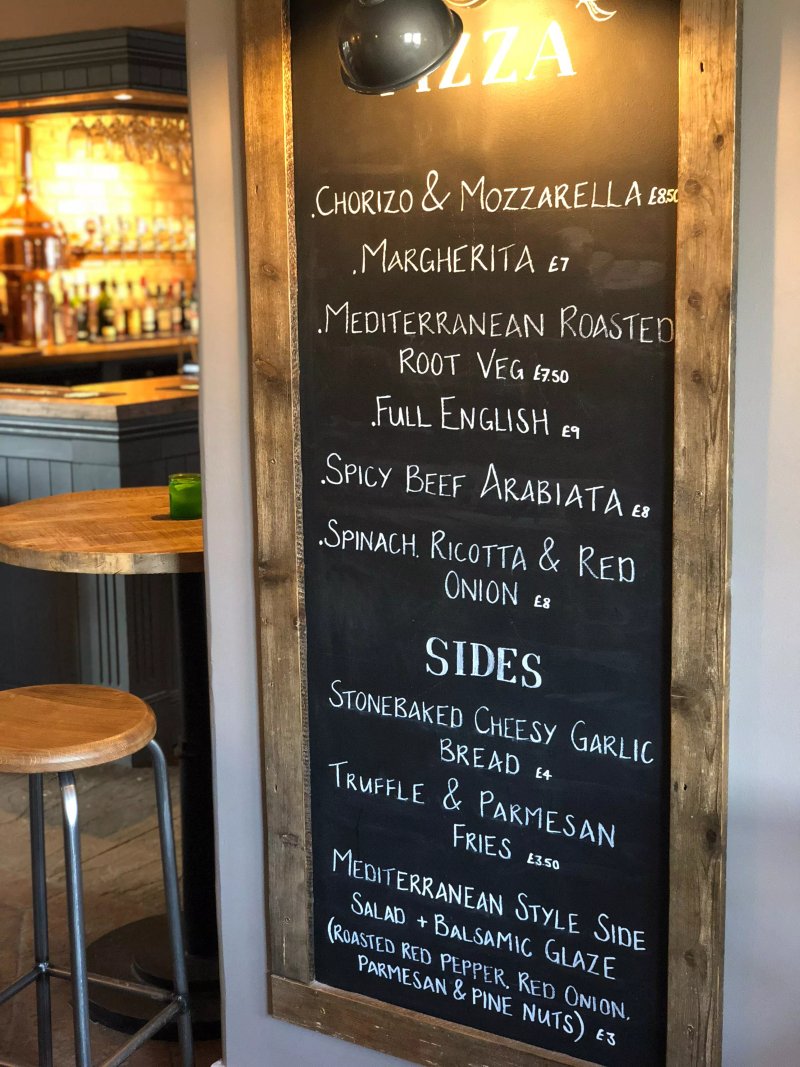 PIZZA
.CHORIZO & MOZZARELLA £8.50
.MARGHERITA £7
.MEDITERRANEAN ROASTED
ROOT VEG £7.50
.FULL ENGLISH £9
.SPICY BEEF ARABIATA £8
.SPINACH, RICOTTA & RED
ONION £8
SIDES
STONEBAKED CHEESY GARLIC
BREAD £4
TRUFFLE & PARMESAN
FRIES £3.50
MEDITERRANEAN STYLE SIDE
SALAD + BALSAMIC GLAZE
(ROASTED RED PEPPER, RED ONION,
PARMESAN & PINE NUTS) £3